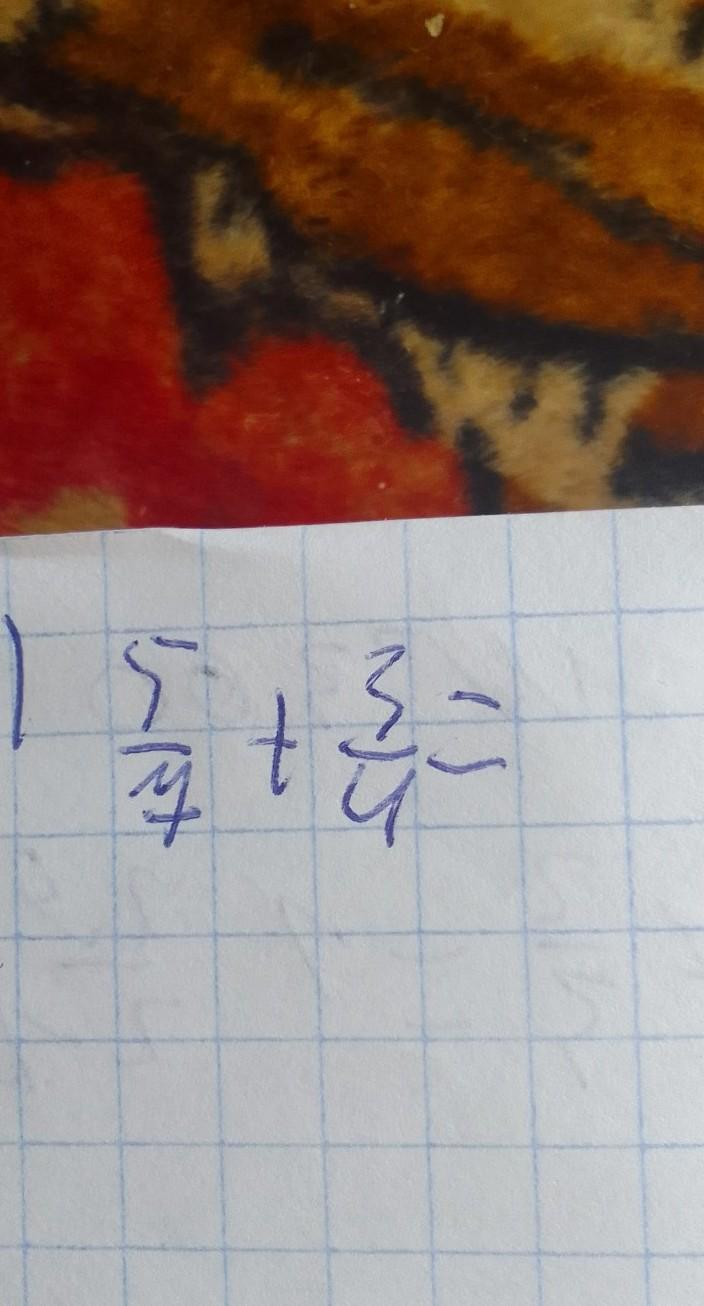 5/7 + 3/4 =